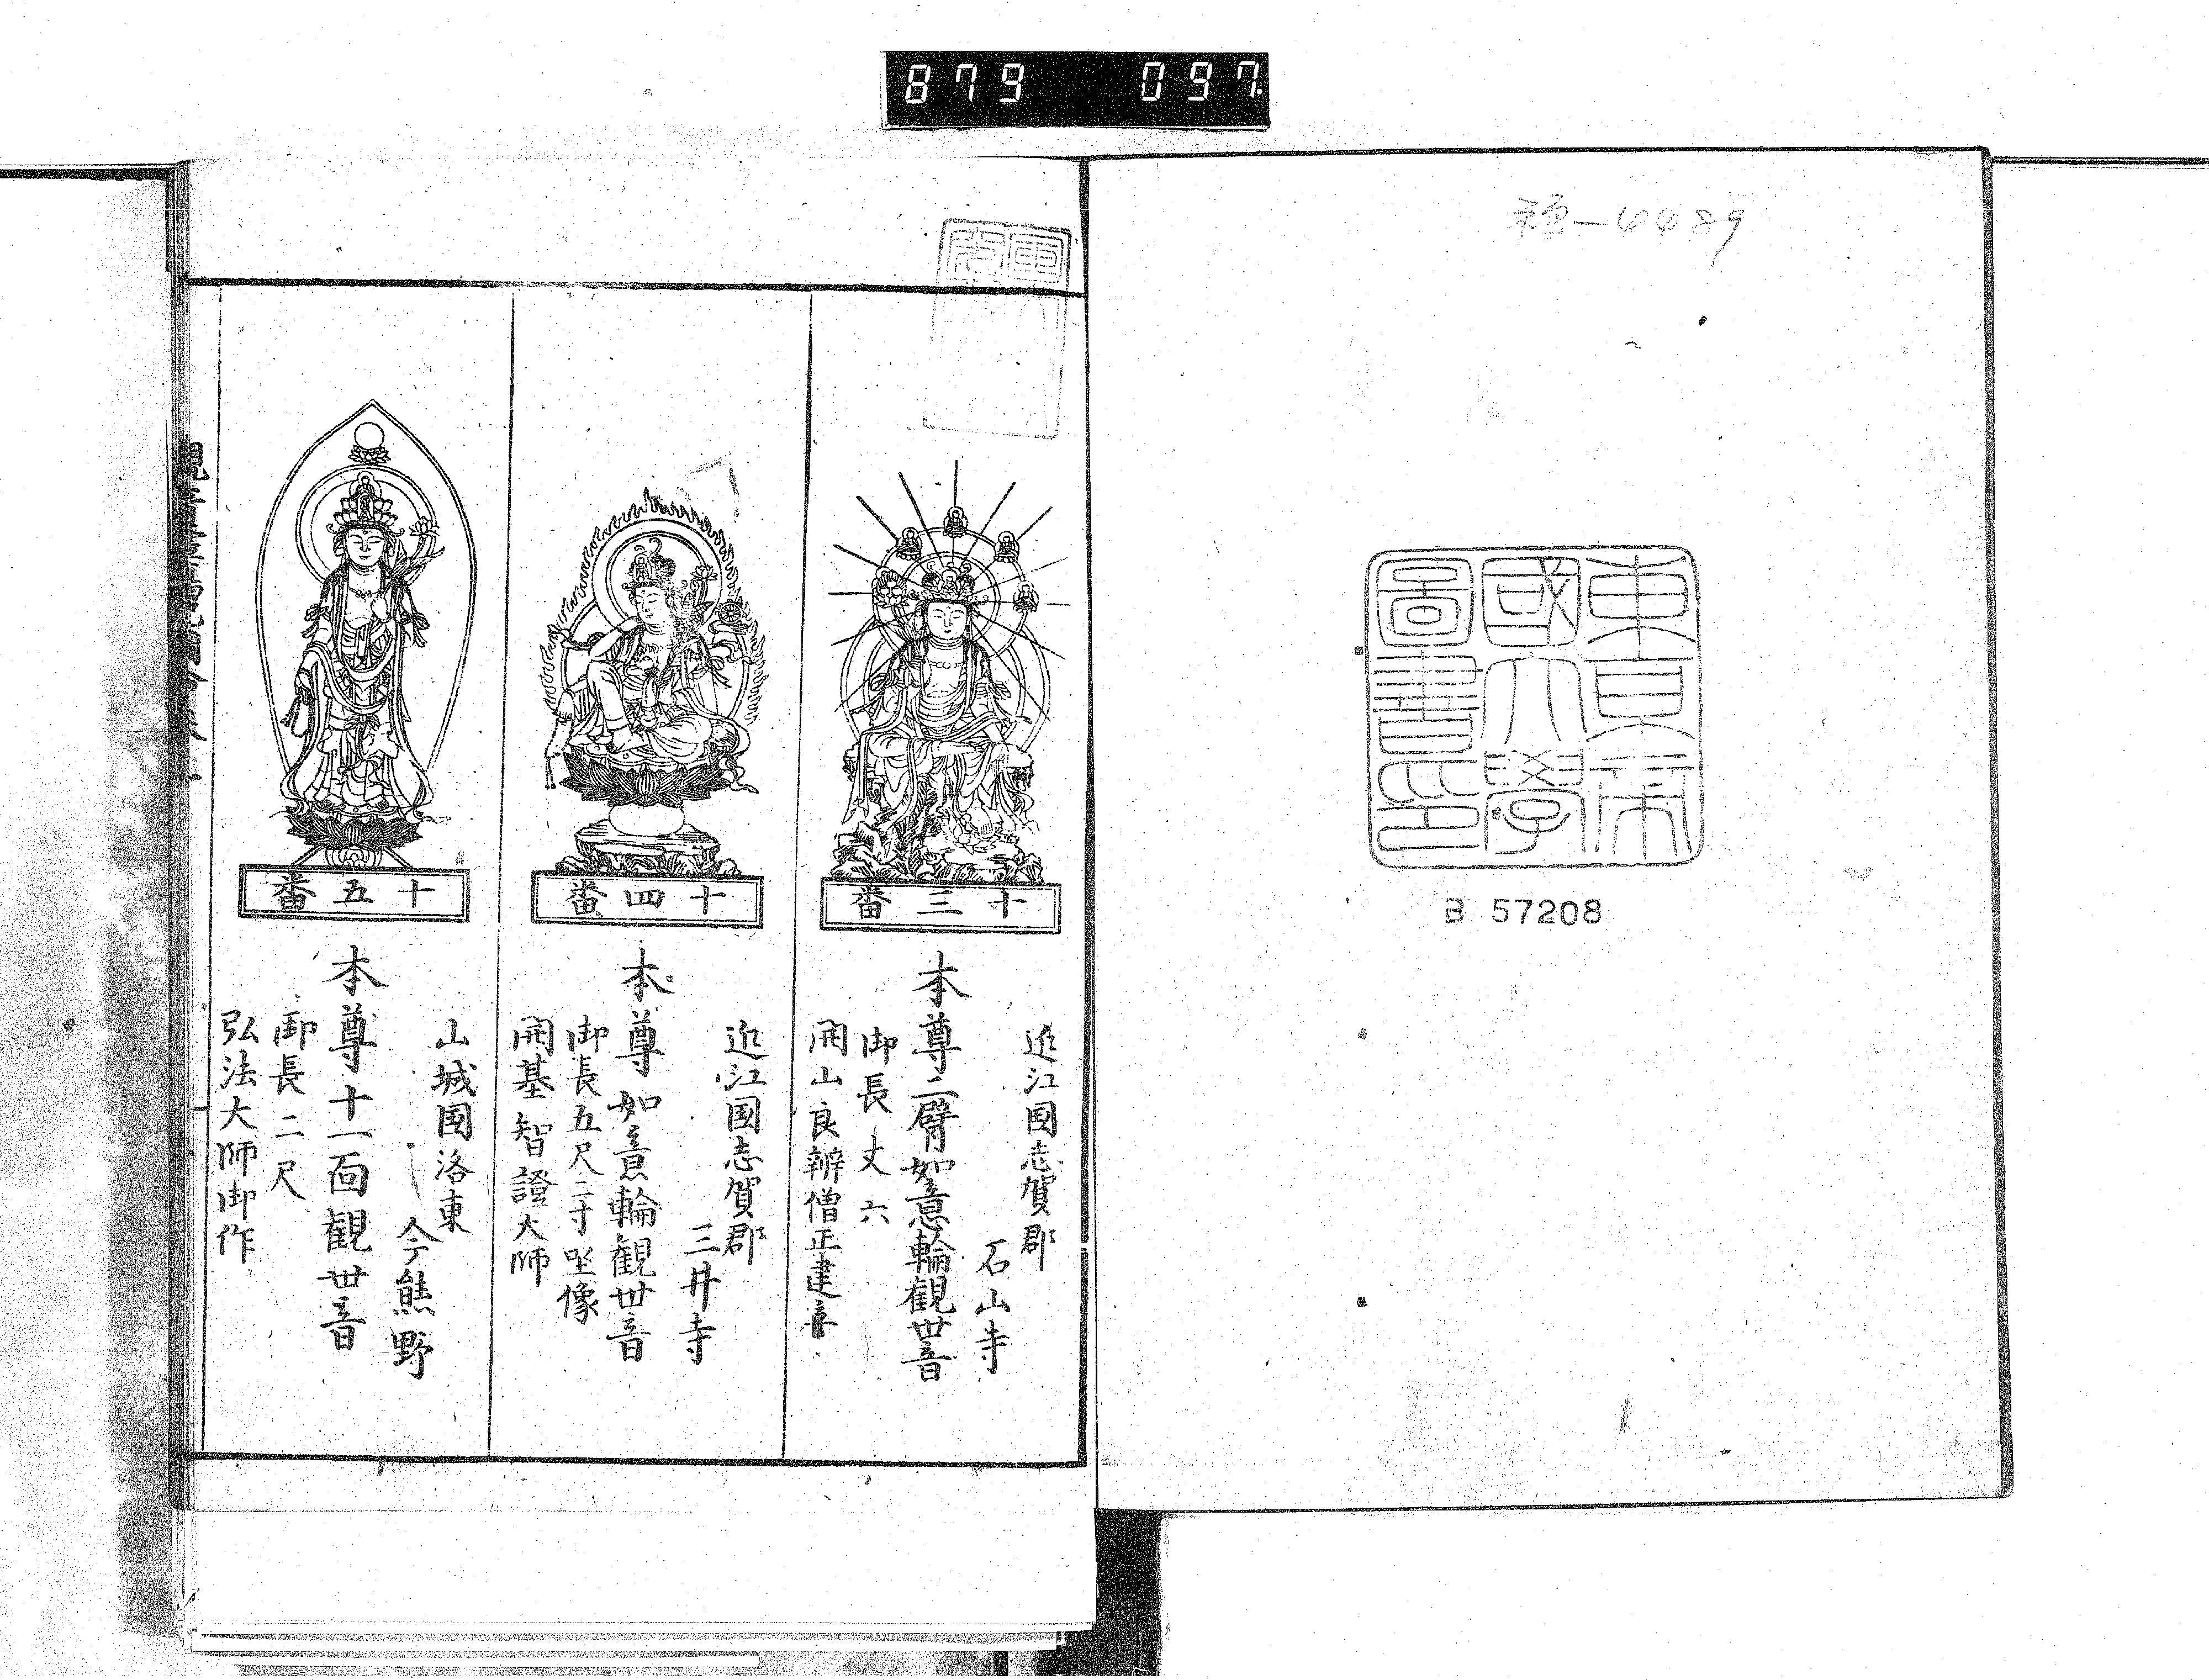 879 097.
東京帝
國大學
圖書印
B 57208
十三番
近江國志賀郡
石山寺
本尊二臂如意輪観世音
御長丈六
開山良辨僧正建立
十四番
近江國志賀郡
三井寺
本尊如意輪観世音
御長五尺二寸坐像
開基智證大師
十五番
山城国洛東
今熊野
本尊十一面観世音
御長二尺
弘法大師御作